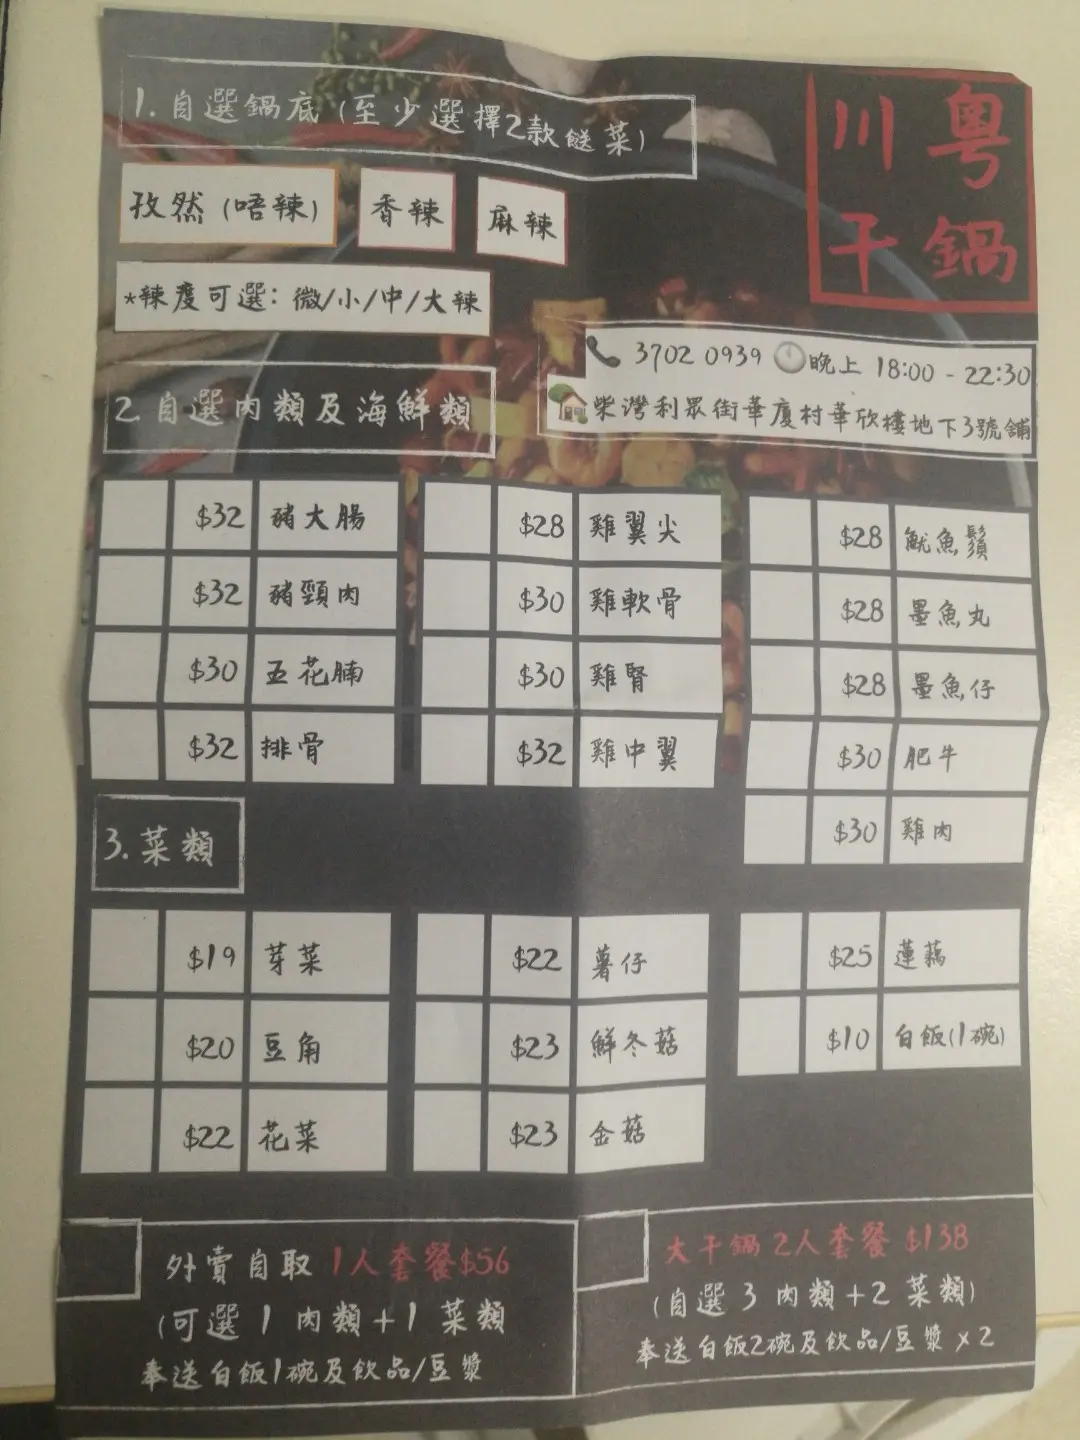 1. 自選鍋底 (至少選擇2款餸菜)
川粵
干鍋
孜然 (唔辣)
香辣
麻辣
*辣度可選: 微/小/中/大辣
3702 0939 晚上 18:00 - 22:30
柴灣利眾街華廈村華欣樓地下3號舖
2. 自選肉類及海鮮類
$32 豬大腸
$32 豬頸肉
$30 五花腩
$32 排骨
$28 雞翼尖
$30 雞軟骨
$30 雞腎
$32 雞中翼
$28 魷魚鬚
$28 墨魚丸
$28 墨魚仔
$30 肥牛
$30 雞肉
3. 菜類
$19 芽菜
$20 豆角
$22 花菜
$22 薯仔
$23 鮮冬菇
$23 金菇
$25 蓮藕
$10 白飯(1碗)
外賣自取 1人套餐$56
(可選 1 肉類+1 菜類
奉送白飯1碗及飲品/豆漿
大干鍋 2人套餐 $138
(自選 3 肉類+2 菜類)
奉送白飯2碗及飲品/豆漿 x2